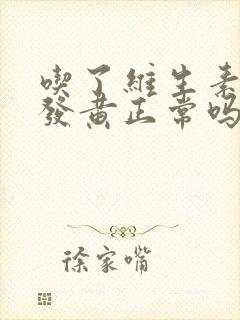 喫了維生素
發黃正常嗎
徐家嘴